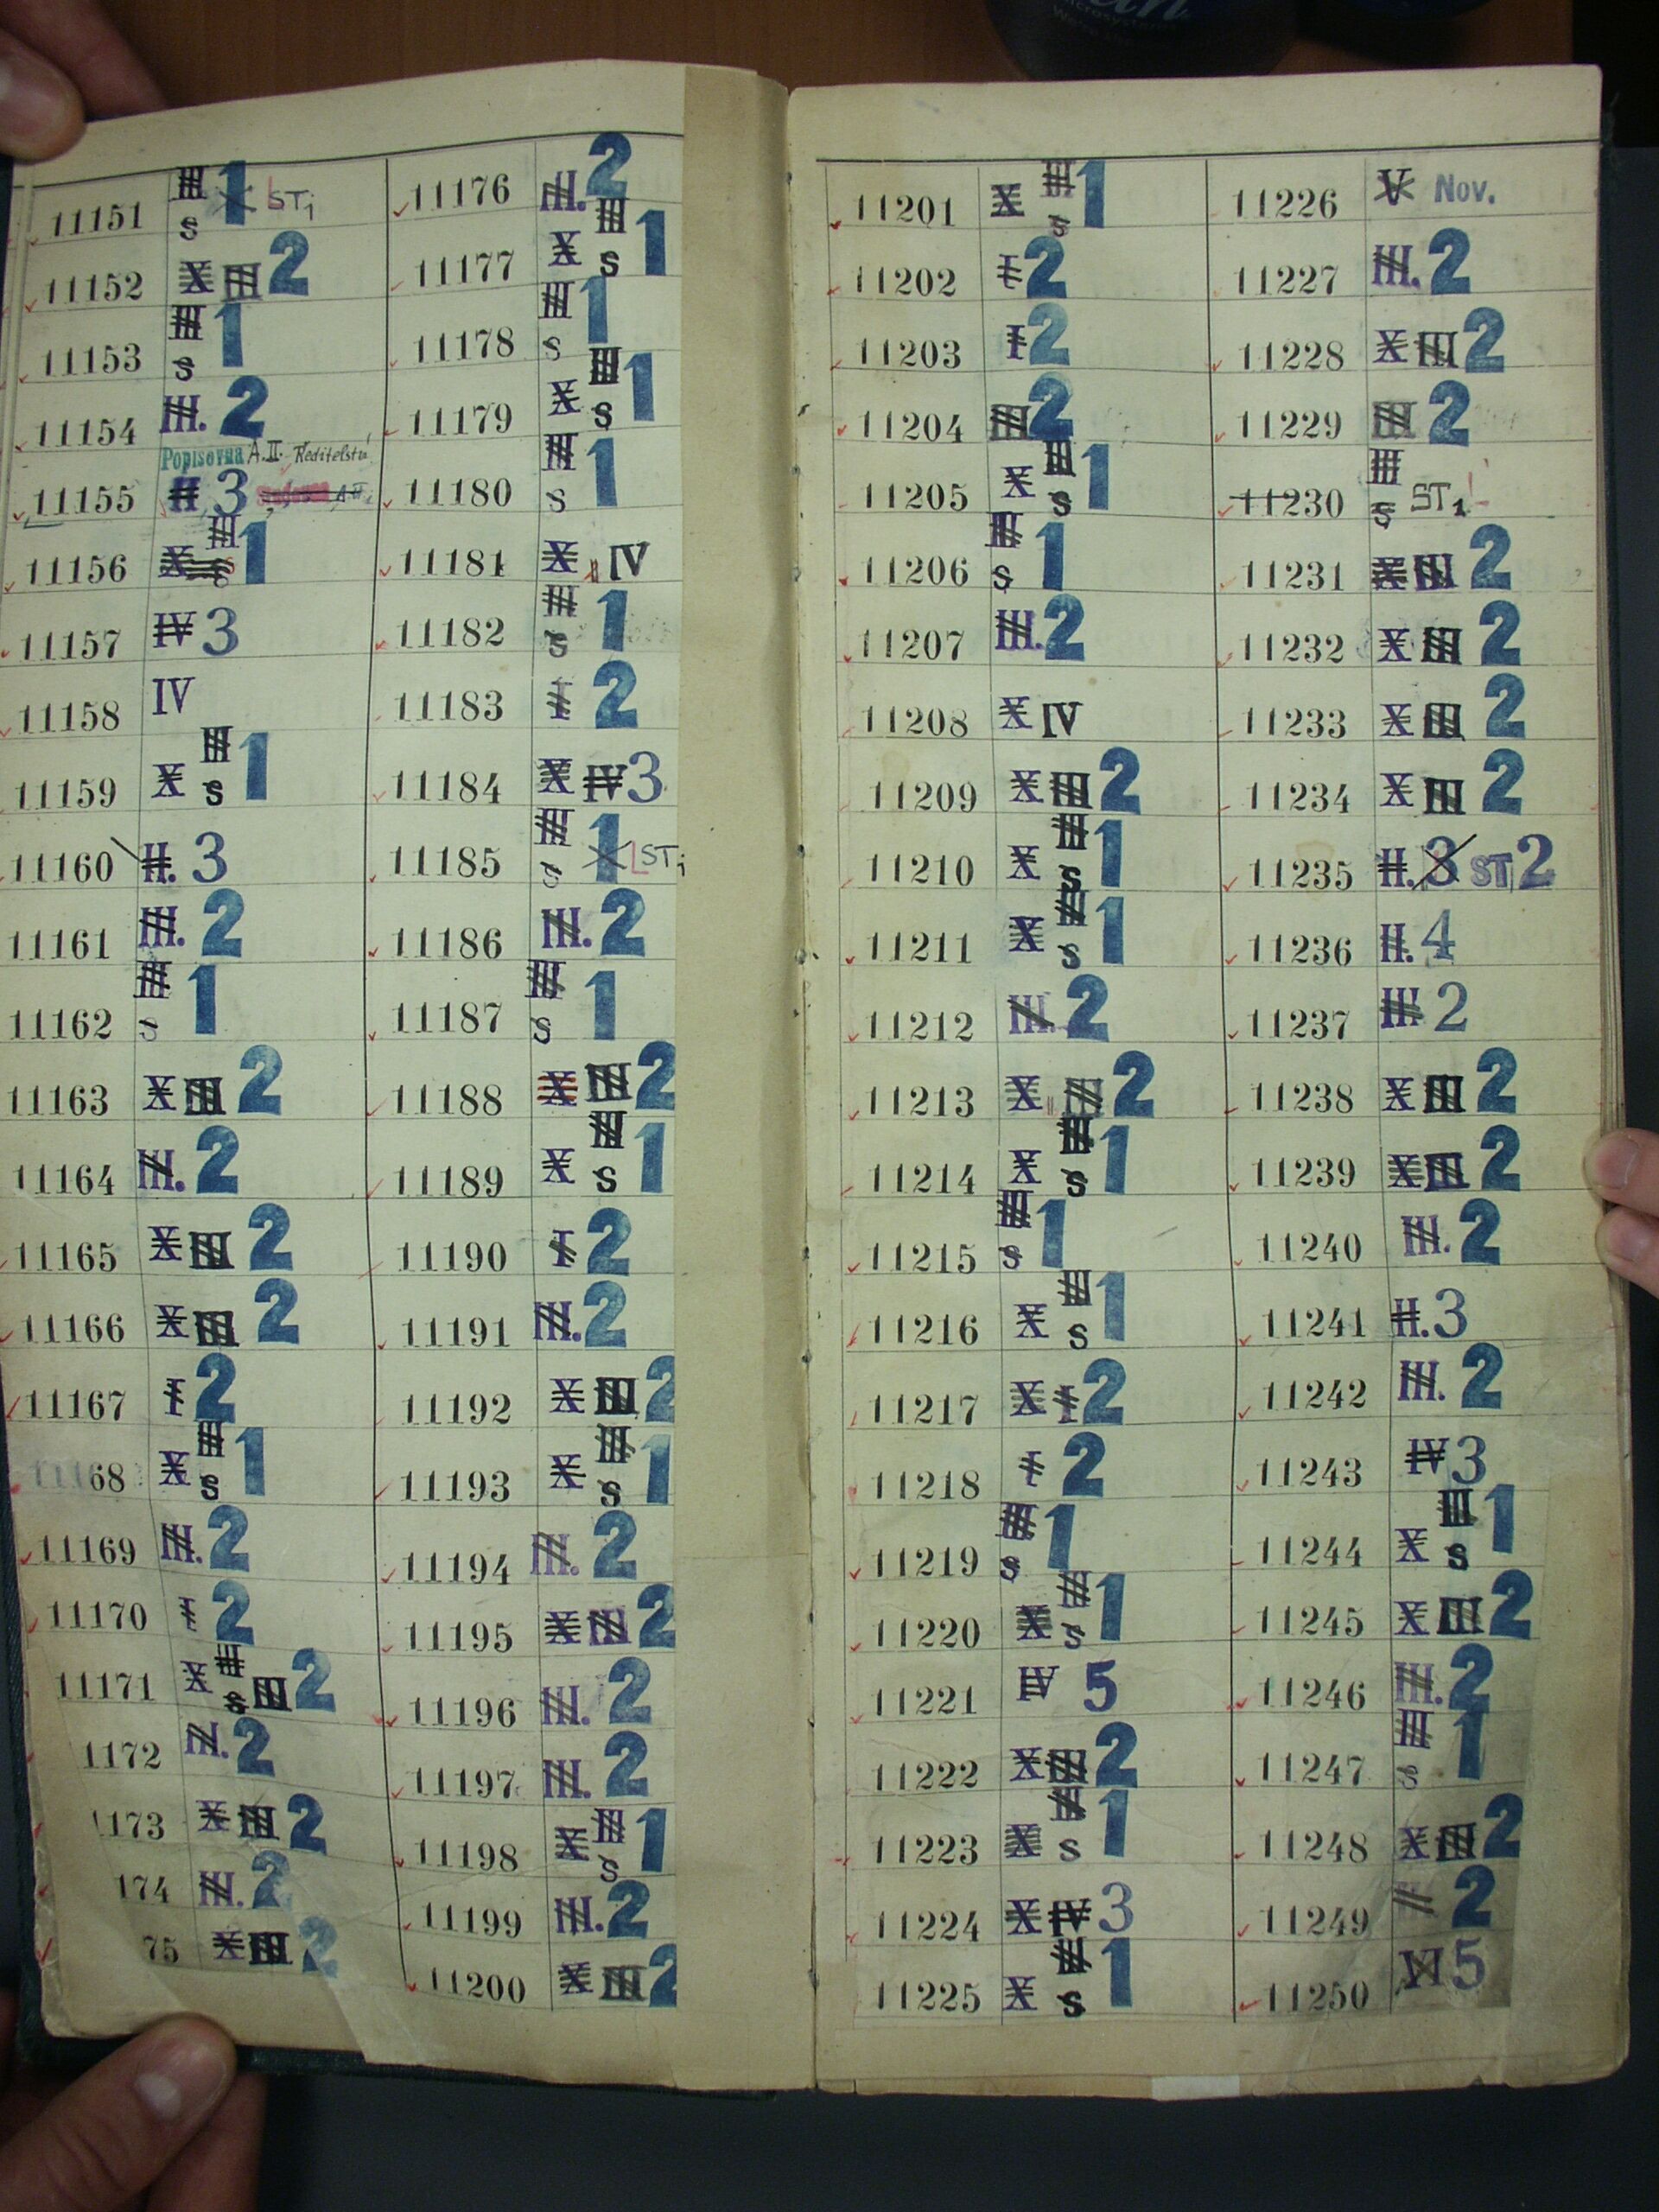 11151 III S 1 X ST1
11152 X III 2
11153 III S 1
11154 III. 2
Popisovna A.II. Ředitelství
11155 II 3
11156 X III S 1
11157 IV 3
11158 IV
11159 X III S 1
11160 II. 3
11161 III. 2
11162 III S 1
11163 X III 2
11164 III. 2
11165 X III 2
11166 X III 2
11167 I 2
11168 X III S 1
11169 III. 2
11170 I 2
11171 X III S III 2
1172 III. 2
1173 X III 2
174 III. 2
75 X III 2
11176 III. 2
11177 X III S 1
11178 III S 1
11179 X III S 1
11180 III S 1
11181 X IV
11182 III S 1
11183 I 2
11184 X IV 3
11185 III S 1 ST1
11186 III. 2
11187 III S 1
11188 X III 2
11189 X III S 1
11190 I 2
11191 III. 2
11192 X III 2
11193 X III S 1
11194 III. 2
11195 X III 2
11196 III. 2
11197 III. 2
11198 X III S 1
11199 III. 2
11200 X III 2
11201 X III S 1
11202 I 2
11203 I 2
11204 III 2
11205 X III S 1
11206 III S 1
11207 III. 2
11208 X IV
11209 X III 2
11210 X III S 1
11211 X III S 1
11212 III. 2
11213 X III 2
11214 X III S 1
11215 III S 1
11216 X III S 1
11217 X I 2
11218 I 2
11219 III S 1
11220 X III S 1
11221 IV 5
11222 X III 2
11223 X III S 1
11224 X IV 3
11225 X III S 1
11226 V Nov.
11227 III. 2
11228 X III 2
11229 III 2
11230 III S ST1
11231 X III 2
11232 X III 2
11233 X III 2
11234 X III 2
11235 II. 3 ST 2
11236 II. 4
11237 III 2
11238 X III 2
11239 X III 2
11240 III. 2
11241 II. 3
11242 III. 2
11243 IV 3
11244 X III S 1
11245 X III 2
11246 III. 2
11247 III S 1
11248 X III 2
11249 2
11250 VI 5